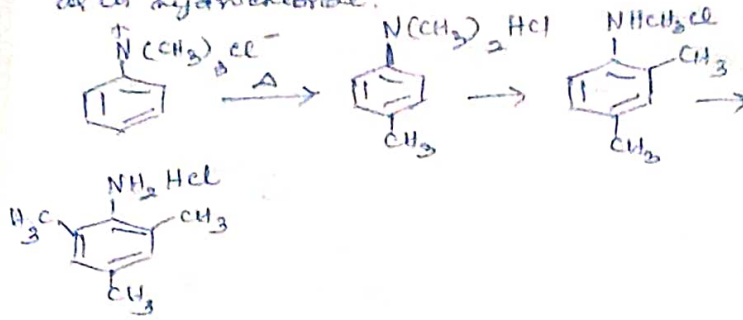 N⁺(CH₃)₃Cl⁻
N(CH₃)₂HCl
NHCH₃Cl
CH₃
Δ
CH₃
CH₃
NH₂ HCl
H₃C
CH₃
CH₃